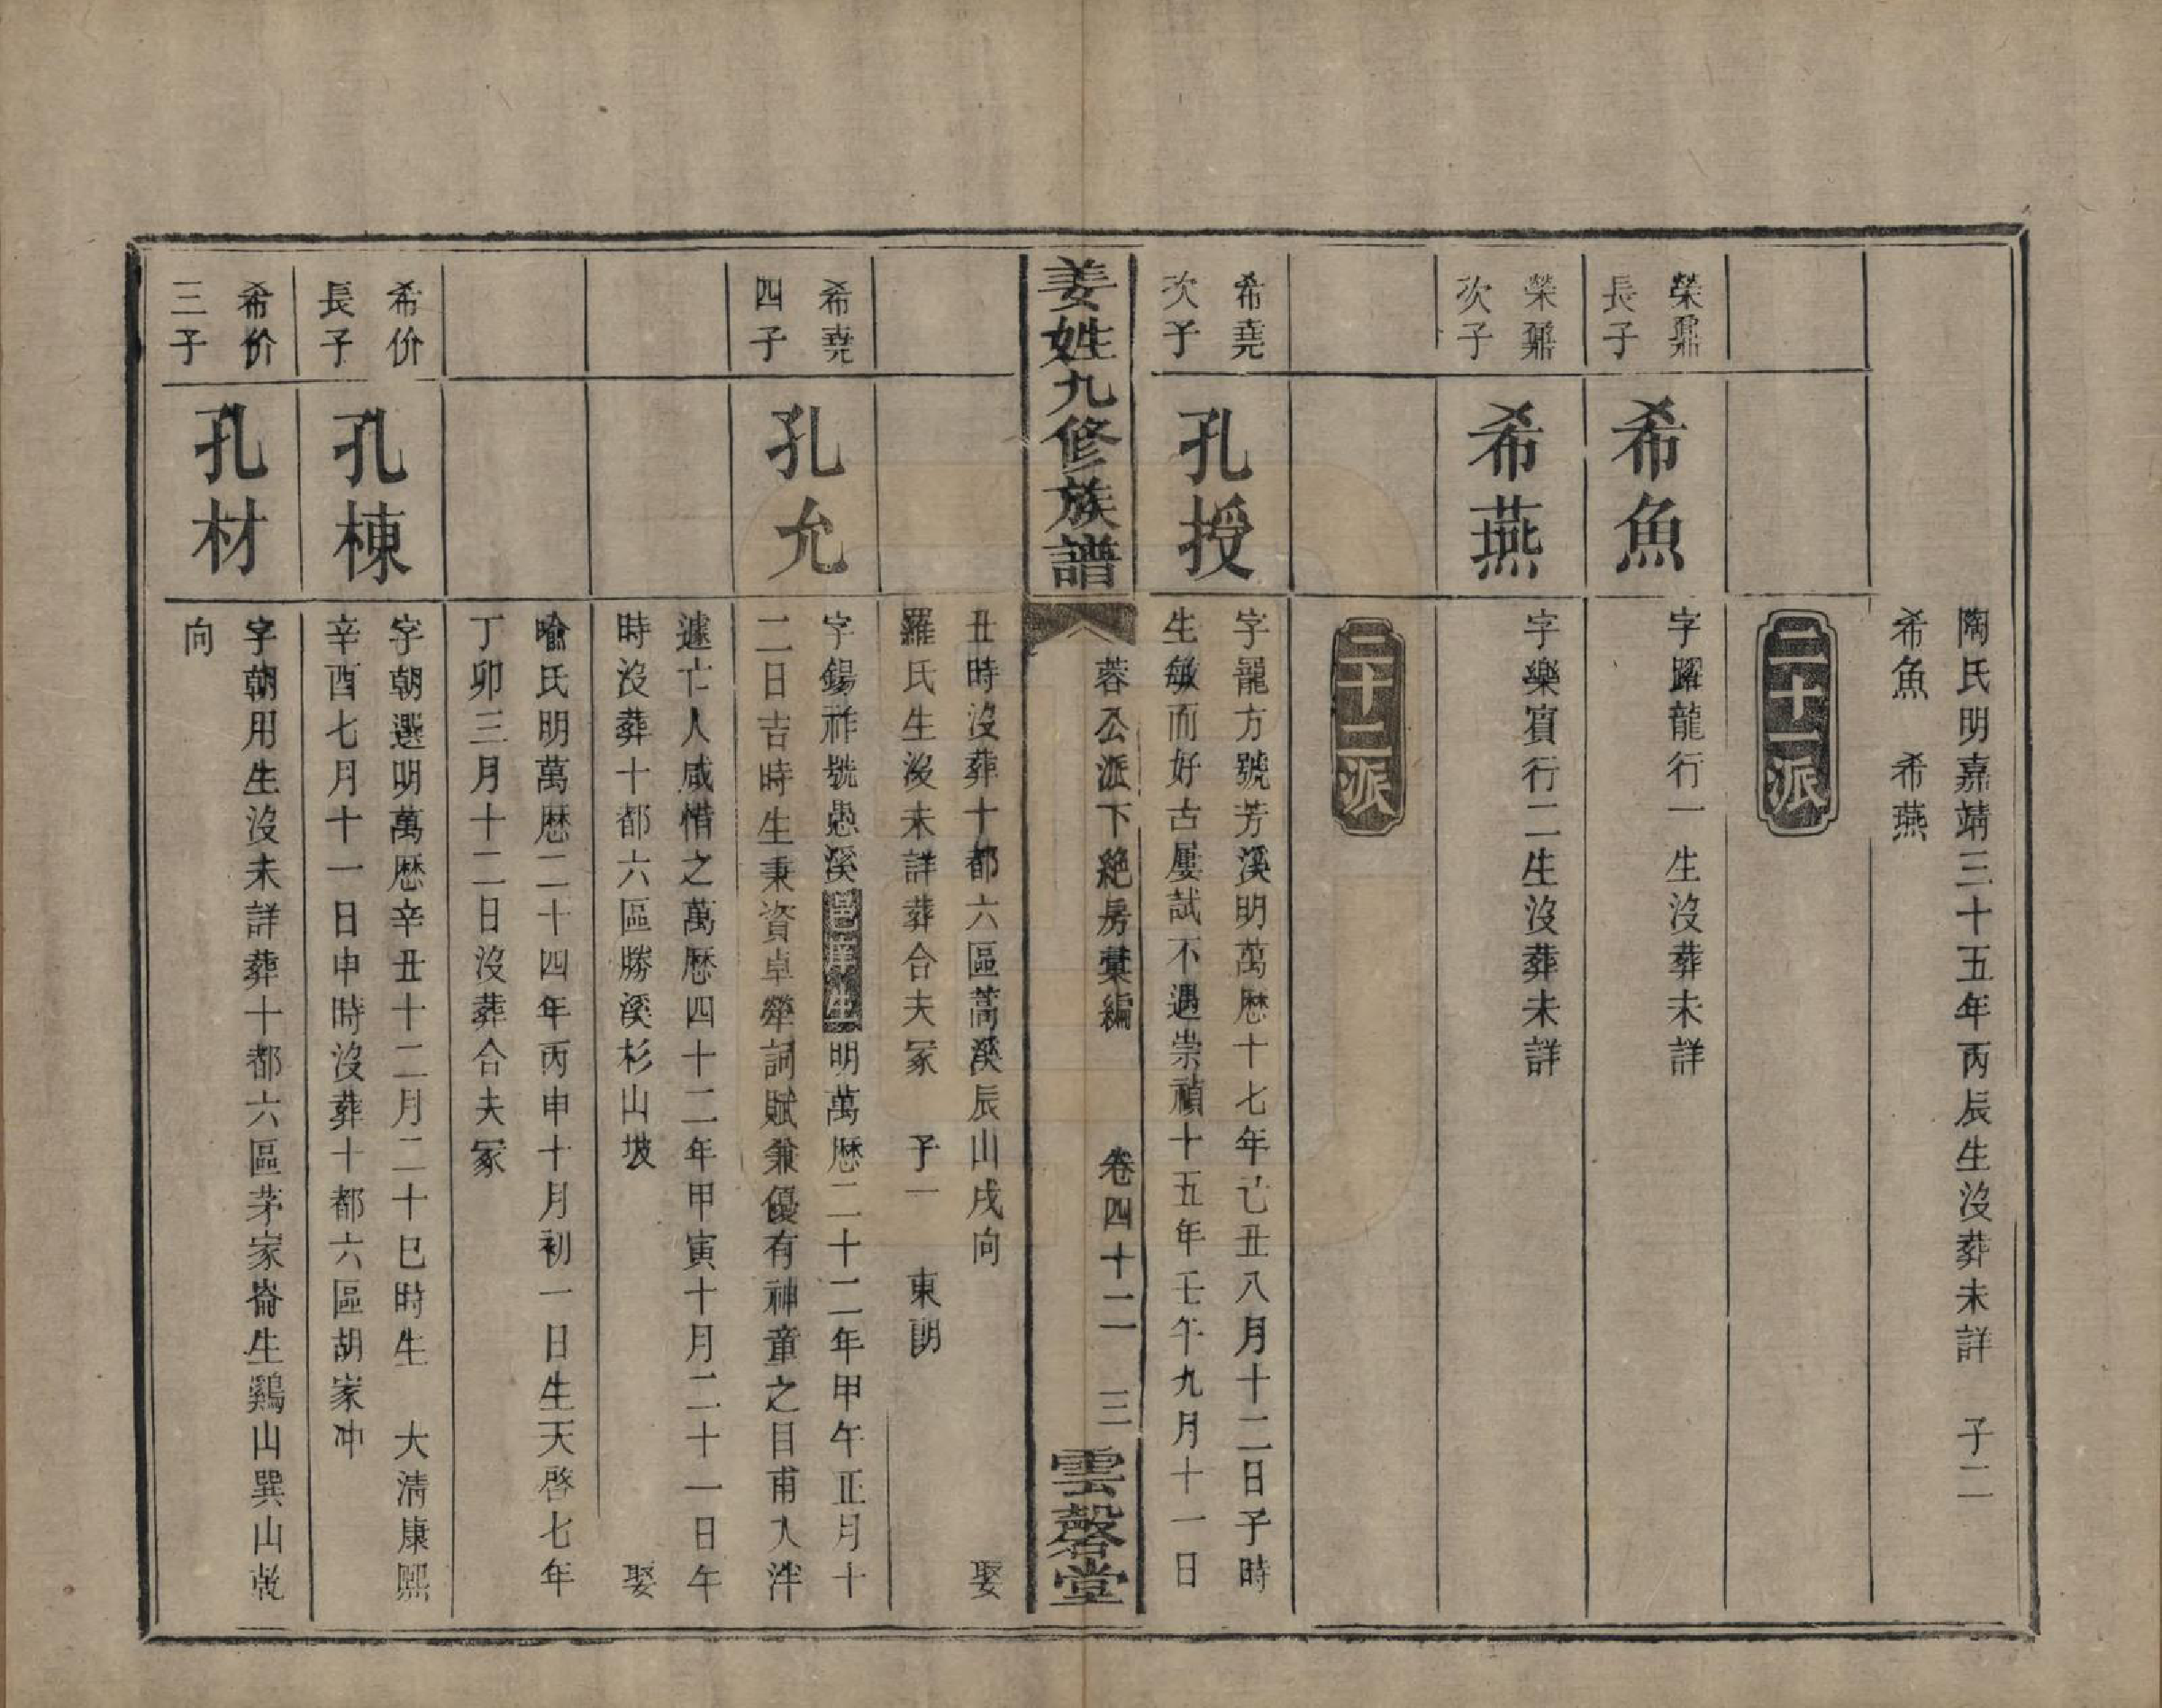 陶氏明嘉靖三十五年丙辰生沒葬未詳　子二
希魚　希燕
二十一派
榮鼐
長子
希魚
字躍龍行一生沒葬未詳
榮鼐
次子
希燕
字樂賓行二生沒葬未詳
二十二派
希堯
次子
孔授
字龍方號芳溪明萬歷十七年己丑八月十二日子時
生敏而好古屢試不遇崇禎十五年壬午九月十一日
姜姓九修族譜
蓉公派下絶房彙編　卷四十二　三
雲磬堂
丑時沒葬十都六區蒿溪辰山戌向　娶
羅氏生沒未詳葬合夫冢　子一　東朗
希堯
四子
孔允
字錫祚號愚溪邑庠生明萬歷二十二年甲午正月十
二日吉時生秉資卓犖詞賦兼優有神童之目甫入泮
遽亡人咸惜之萬歷四十二年甲寅十月二十一日午
時沒葬十都六區勝溪杉山坡　娶
喻氏明萬歷二十四年丙申十月初一日生天啓七年
丁卯三月十二日沒葬合夫冢
希价
長子
孔棟
字朝選明萬歷辛丑十二月二十巳時生　大清康熙
辛酉七月十一日申時沒葬十都六區胡家冲
希价
三子
孔材
字朝用生沒未詳葬十都六區茅家崙生鷄山巽山乾
向